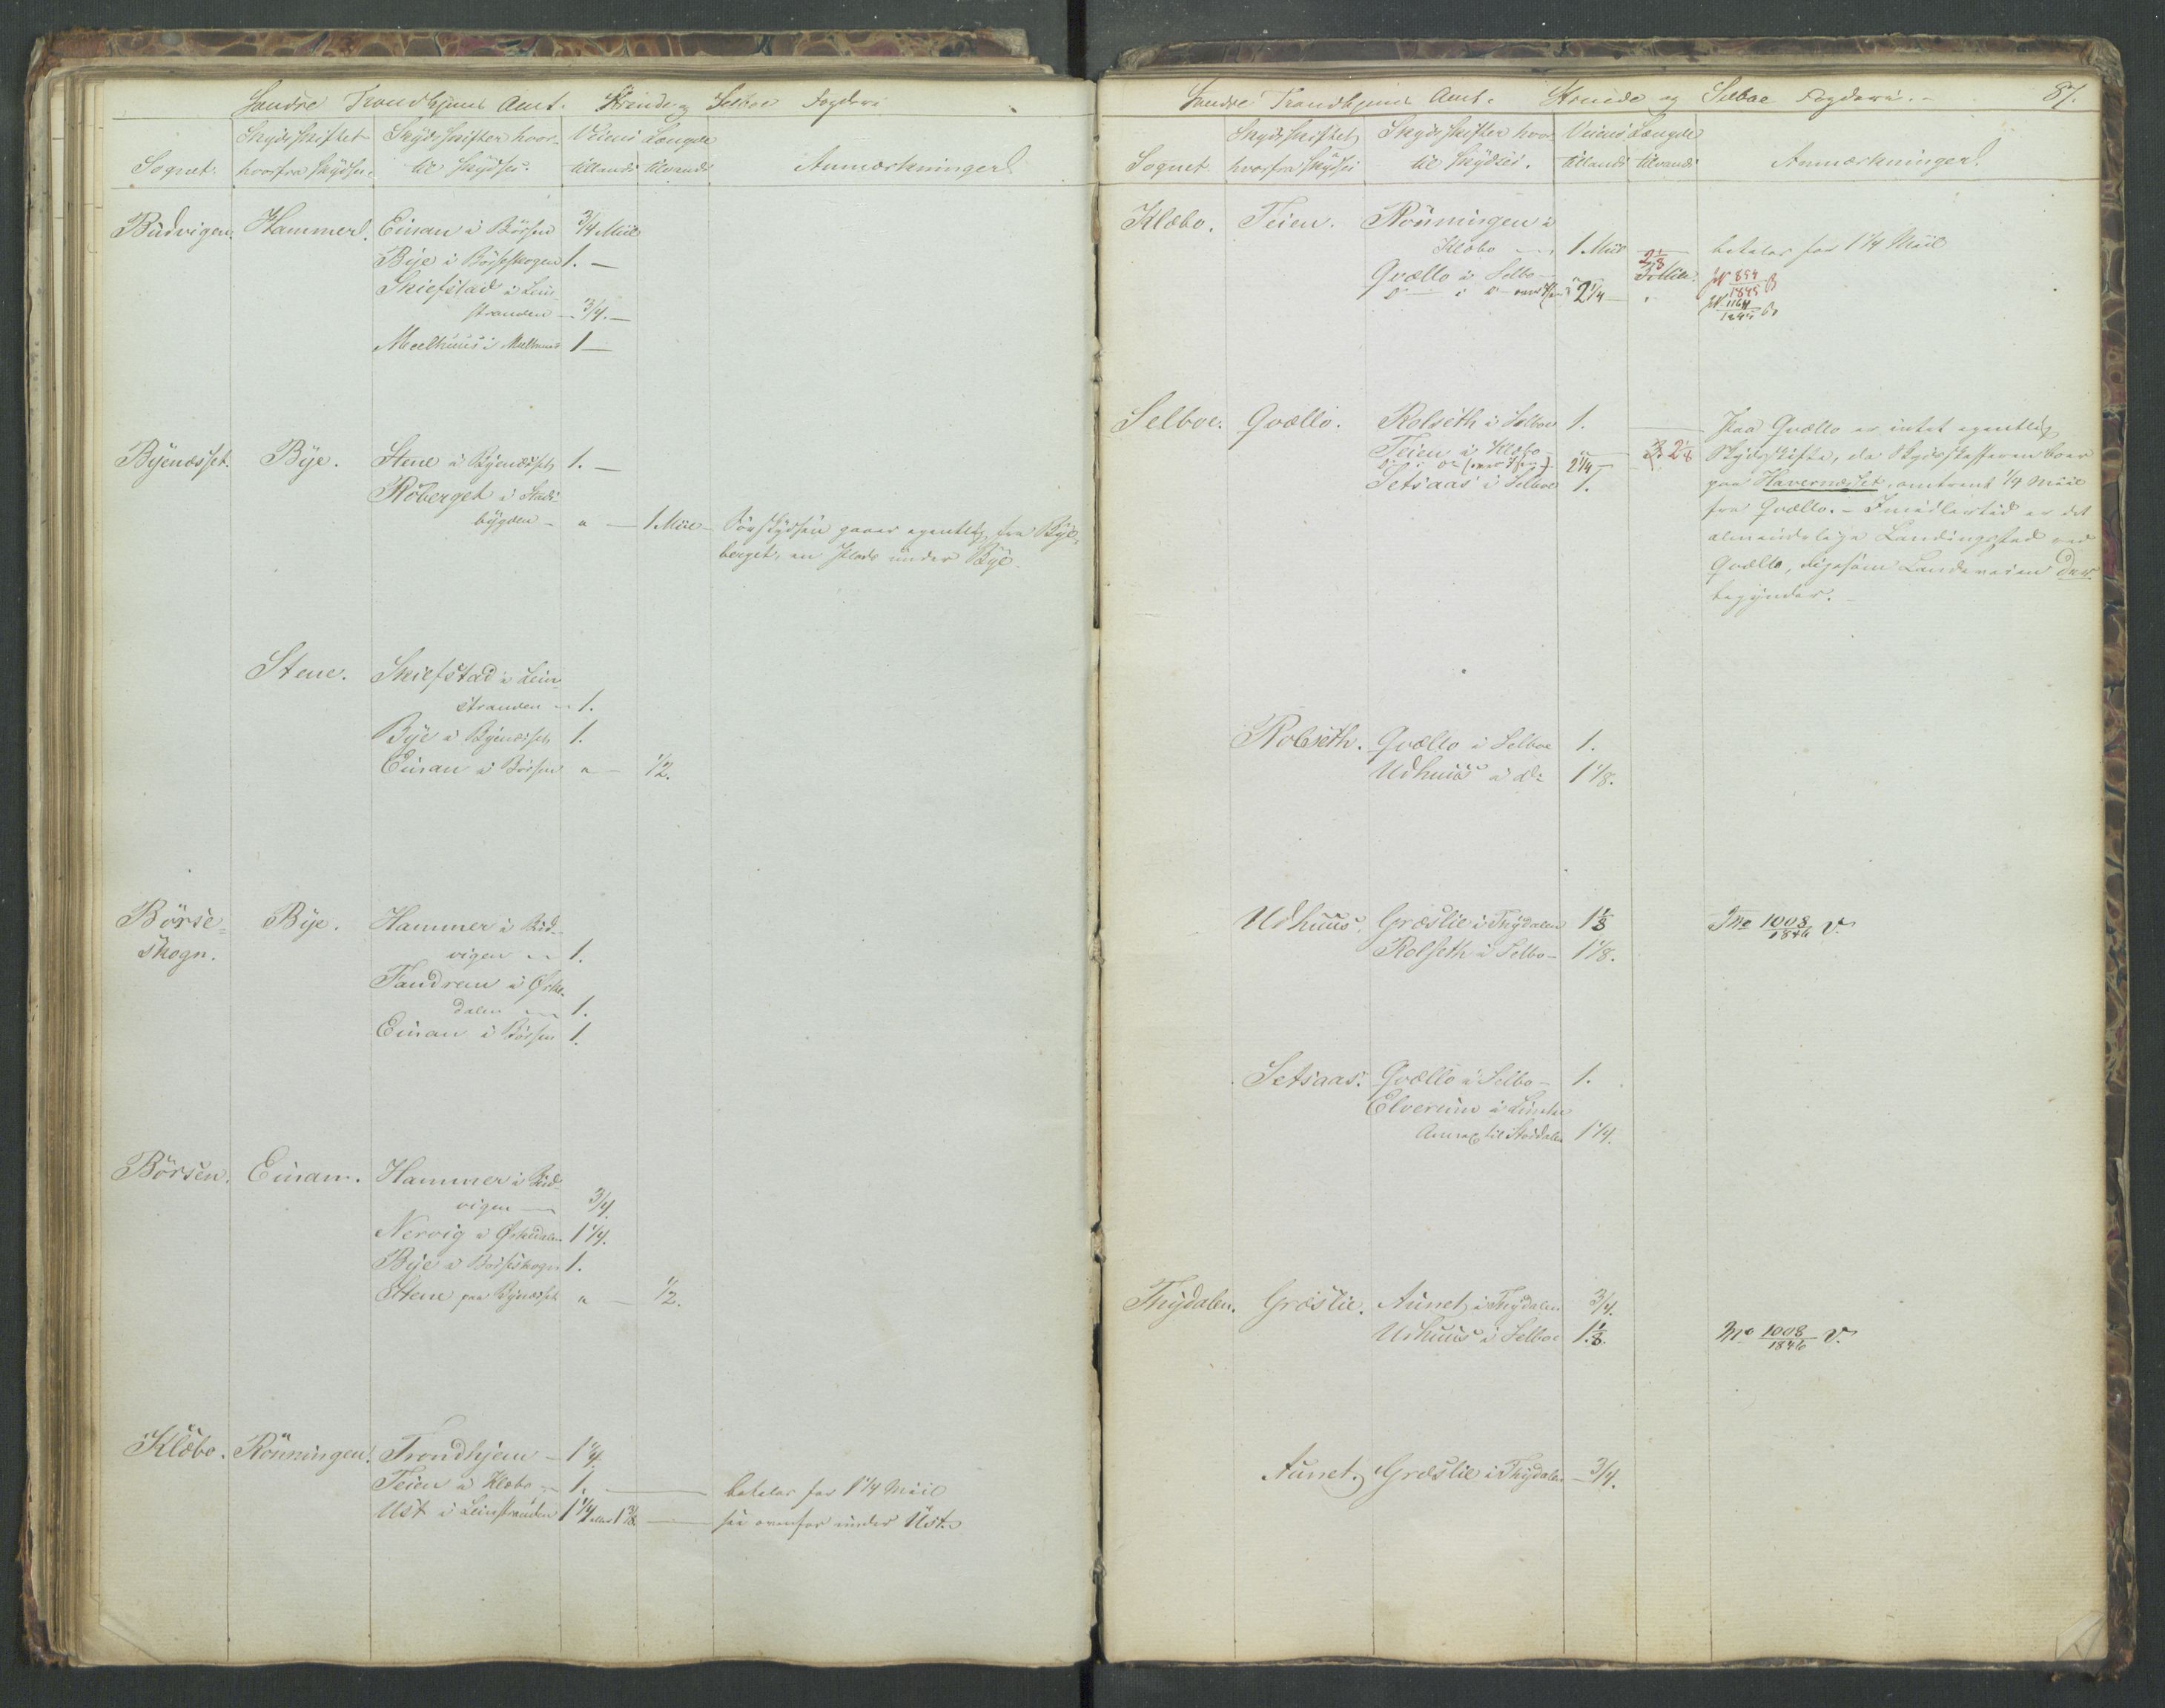 Søndre Trondhjems Amt. Strinde og Selboe Fogderi
Sognet. Skydsskiftet hvorfra skydses. Skydsskifter hvortil skydses. Veiens Længde tillands tilvands Anmærkninger
Budvigen. Hammer. Einan i Börsen 3/4 Miil
Bye i Börseskogen 1. —
Skiefstad i Lein-
stranden — 3/4. —
Meelhuus i Meelhuus 1 —
Byenæsset. Bye. Stene i Byenæsset 1. —
Röberget i Stads-
bygden - " — 1 Miil - Söeskydsen gaaer egentlig fra Bye-
berget, en Plads under Bye.
Stene. Skiefstad i Lein-
stranden — 1.
Bye i Byenæsset 1.
Einan i Börsen " — 1/2.
Börse- Bye. Hammer i Bud-
skogn. vigen — 1.
Fandrem i Örke-
dalen — 1.
Einan i Börsen 1.
Börsen. Einan. Hammer i Bud-
vigen — 3/4.
Nervig i Örkedalen 1 1/4.
Bye i Börseskogn 1.
Stene paa Bynæsset " — 1/2.
Klöbo. Rönningen. Trondhjem — 1 1/4
Teien i Klæbo — 1. — betales for 1 1/4 Miil
Ust i Leinstranden 1 1/4 eller 1 3/8 — see ovenfor under Ust.
Søndre Trondhjems Amt. Strinde og Selboe Fogderi. - 87.
Sognet. Skydsskiftet hvorfra skydses Skydsskifter hvortil skydses. Veiens Længde tillands tilvands Anmærkninger.
Klæbo. Teien. Rönningen i
Klæbo — 1 Miil — betales for 1 1/4 Miil
2 1/8
Qvællo i Selbo — " 3 Miile JN 854/1845 B
Do i Do 2 1/4 — " JN 1164
Selboe. Qvællo. Rolseth i Selboe 1. — Paa Qvællo er intet egentlig
Teien i Klæbo — " 3. 2 1/8 Skydsskifte, da Skydsskafferen boer
Do i Do 2 1/4 — paa Havernæsset, omtrent 1/4 Miil
Setsaas i Selboe 1. fra Qvællo. - Imidlertid er det
almindelige Landingssted ved
Qvællo, ligesom Landeveien der
begynder. -
Rolseth. Qvællo i Selboe 1.
Udhuus i do 1 1/8.
Udhuus. Græslie i Thydalen 1 1/8 Jno 1008/1846 V.
Rolseth i Selbo — 1 1/8.
Setsaas. Qvællo i Selbo — 1.
Elverum i Lunke
Annex til Stördalen 1 1/4.
Thydalen. Græslie. Aunet i Thydalen 3/4.
Udhuus i Selboe 1 1/8. Jno 1008/1846 V.
Aunet. Græslie i Thydalen — 3/4.